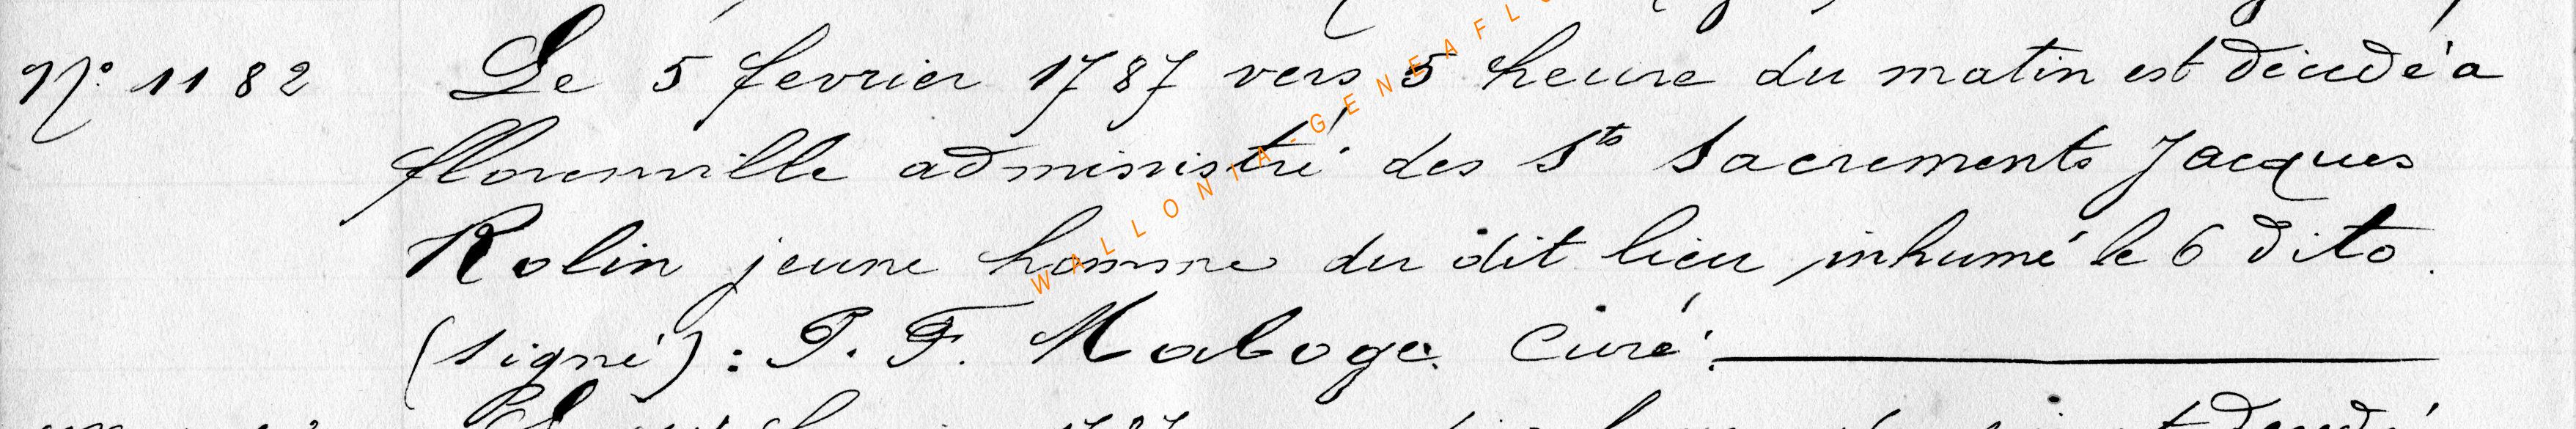 N° 1182 Le 5 fevrier 1787 vers 5 heure du matin est décédé a
florenville administré des Sts Sacrements Jacques
Rolin jeune homme du dit lieu, inhumé le 6 dito.
(signé): P. F. Maboge. Curé.
WALLONIA-GENEAFLO